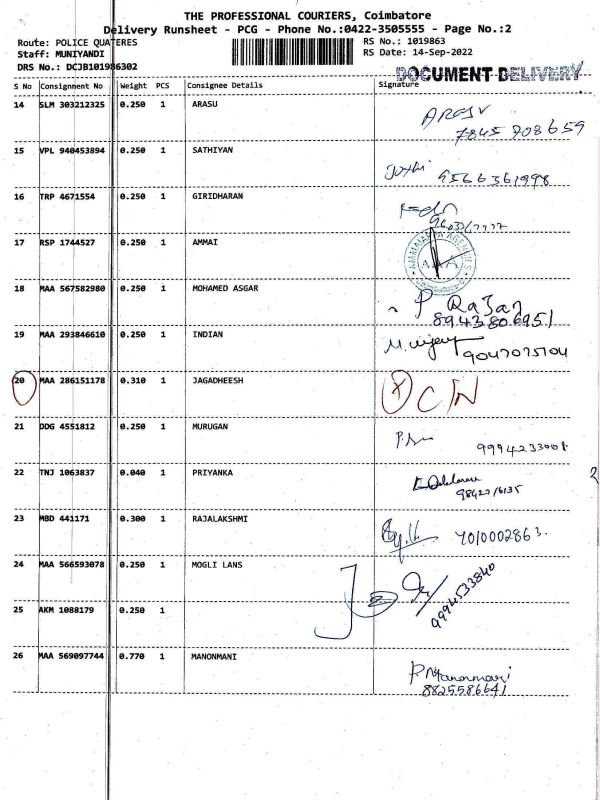 THE PROFESSIONAL COURIERS, Coimbatore
Delivery Runsheet - PCG - Phone No.:0422-3505555 - Page No.:2
Route: POLICE QUATERES RS No.: 1019863
Staff: MUNIYANDI RS Date: 14-Sep-2022
DRS No.: DCJB101986302 DOCUMENT DELIVERY
S No Consignment No Weight PCS Consignee Details Signature
14 SLM 303212325 0.250 1 ARASU ARASU
7845 708659
15 VPL 940453894 0.250 1 SATHIYAN
9566361998
16 TRP 4671554 0.250 1 GIRIDHARAN
17 RSP 1744527 0.250 1 AMMAI
AAA
18 MAA 567582980 0.250 1 MOHAMED ASGAR P Rajan
8943806951
19 MAA 293846610 0.250 1 INDIAN M. vijay
9047075704
20 MAA 286151178 0.310 1 JAGADHEESH X C/N
21 DDG 4551812 0.250 1 MURUGAN
9994233001
22 TNJ 1063837 0.040 1 PRIYANKA
9842216135
2
23 MBD 441171 0.300 1 RAJALAKSHMI
7010002863.
24 MAA 566593078 0.250 1 MOGLI LANS
9994533840
25 AKM 1088179 0.250 1
26 MAA 569097744 0.770 1 MANONMANI
P Manonmani
8825586641